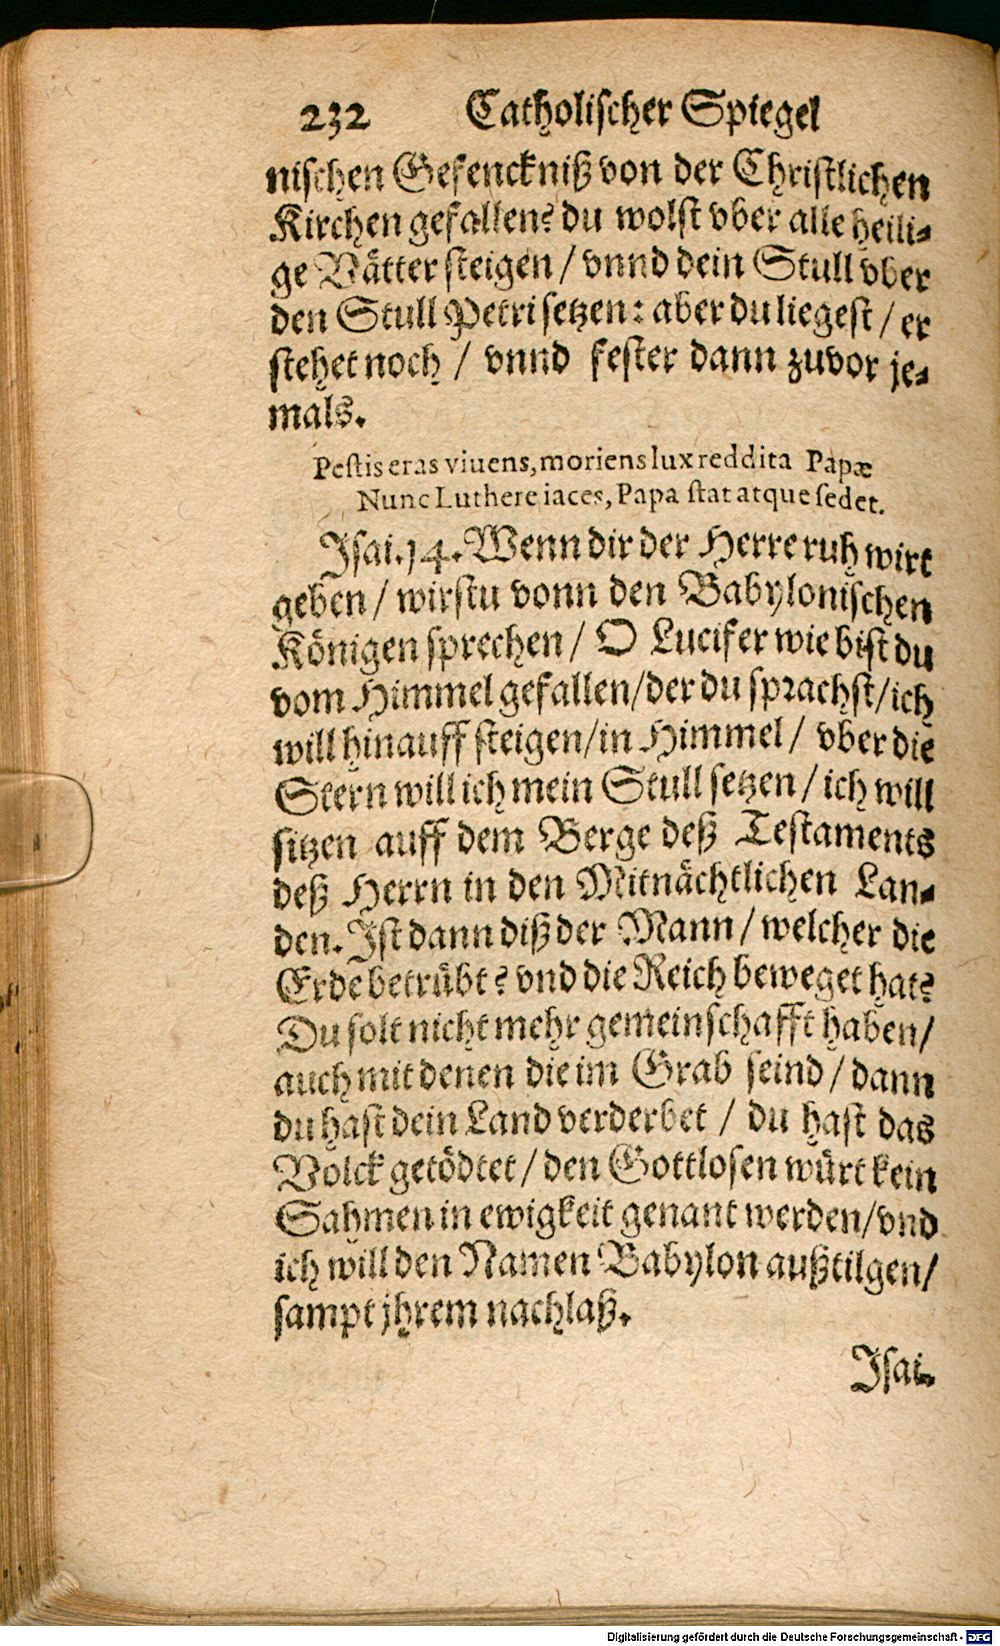 232 Catholischer Spiegel
nischen Gefenckniß von der Christlichen
Kirchen gefallen? du wolst vber alle heili-
ge Vätter steigen / vnnd dein Stull vber
den Stull Petri setzen: aber du liegest / er
stehet noch / vnnd fester dann zuvor je-
mals.
Pestis eras viuens, moriens lux reddita Papæ
Nunc Luthere iaces, Papa stat atque sedet.
Isai. 14. Wenn dir der Herre ruh wirt
geben / wirstu vonn den Babylonischen
Königen sprechen / O Lucifer wie bist du
vom Himmel gefallen/der du sprachst/ich
will hinauff steigen/in Himmel / vber die
Stern will ich mein Stull setzen / ich will
sitzen auff dem Berge deß Testaments
deß Herrn in den Mitnächtlichen Lan-
den. Ist dann diß der Mann / welcher die
Erde betrübt? vnd die Reich beweget hat?
Du solt nicht mehr gemeinschafft haben/
auch mit denen die im Grab seind / dann
du hast dein Land verderbet / du hast das
Volck getödtet / den Gottlosen würt kein
Sahmen in ewigkeit genant werden/vnd
ich will den Namen Babylon außtilgen/
sampt jhrem nachlaß.
Isai.
Digitalisierung gefördert durch die Deutsche Forschungsgemeinschaft - DFG